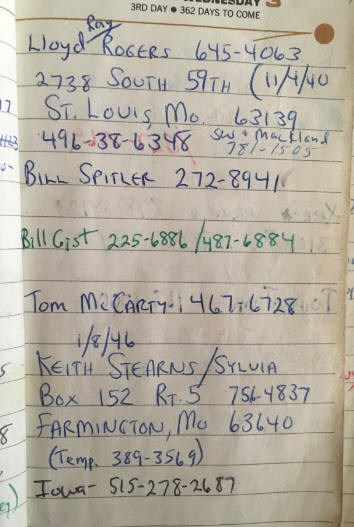 WEDNESDAY 3
3RD DAY • 362 DAYS TO COME
Ray
Lloyd Rogers 645-4063
2738 South 59th (11/4/40
St. Louis, Mo. 63139
496-38-6348 Sw + Mackland
781-1505
Bill Spitler 272-8941
Bill Gist 225-6886/487-6884
Tom McCarty 467-6728
1/8/46
Keith Stearns/Sylvia
Box 152 Rt. 5 756-4837
Farmington, Mo 63640
(Temp. 389-3569)
Iowa- 515-278-2687